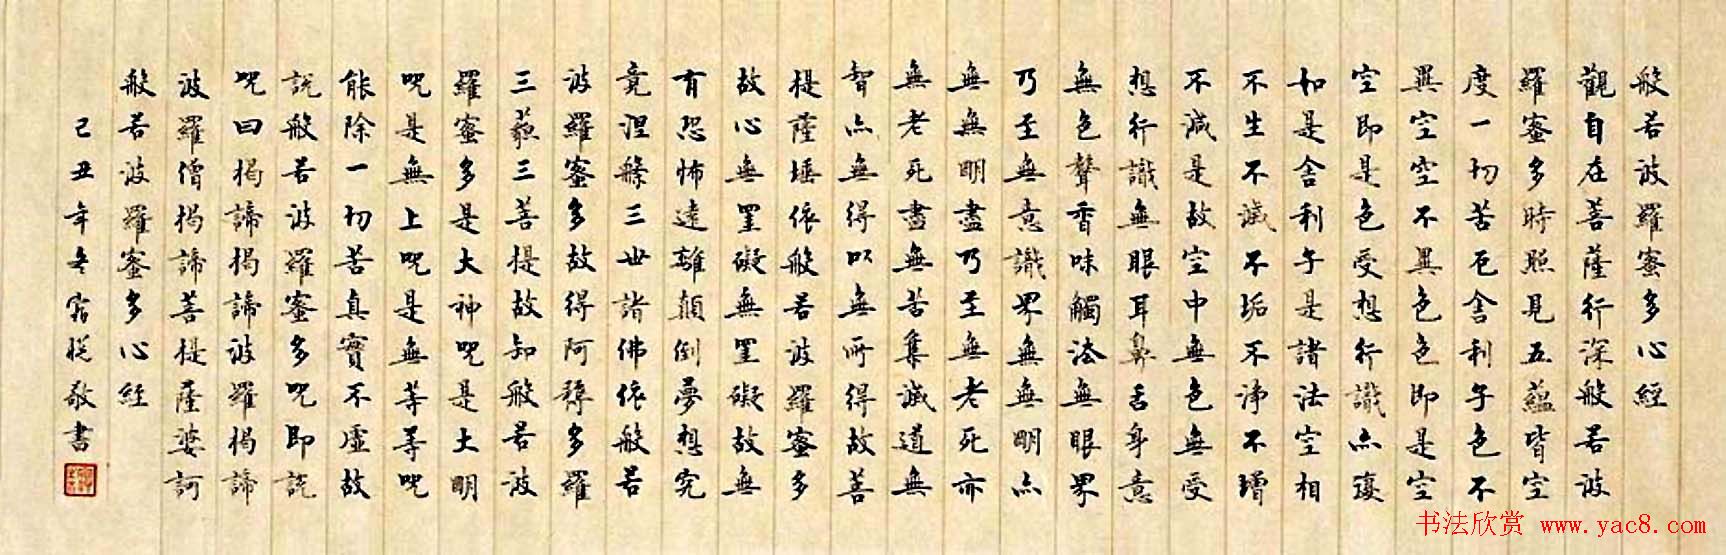 般若波羅蜜多心經
觀自在菩薩行深般若波
羅蜜多時照見五蘊皆空
度一切苦厄舍利子色不
異空空不異色色即是空
空即是色受想行識亦復
如是舍利子是諸法空相
不生不滅不垢不淨不增
不減是故空中無色無受
想行識無眼耳鼻舌身意
無色聲香味觸法無眼界
乃至無意識界無無明亦
無無明盡乃至無老死亦
無老死盡無苦集滅道無
智亦無得以無所得故菩
提薩埵依般若波羅蜜多
故心無罣礙無罣礙故無
有恐怖遠離顛倒夢想究
竟涅槃三世諸佛依般若
波羅蜜多故得阿耨多羅
三藐三菩提故知般若波
羅蜜多是大神咒是大明
咒是無上咒是無等等咒
能除一切苦真實不虛故
說般若波羅蜜多咒即說
咒曰揭諦揭諦波羅揭諦
波羅僧揭諦菩提薩婆訶
般若波羅蜜多心經
己丑年冬敬書
书法欣赏 www.yac8.com